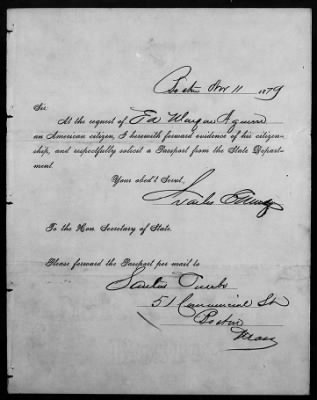 Boston Nov 11 1879
Sir:
At the request of Ed Morgan
an American citizen, I herewith forward evidence of his citizen-
ship, and respectfully solicit a Passport from the State Depart-
ment.
Your obed't Servt,
To the Hon. Secretary of State.
Please forward the Passport per mail to
51 Commercial St
Boston
Mass